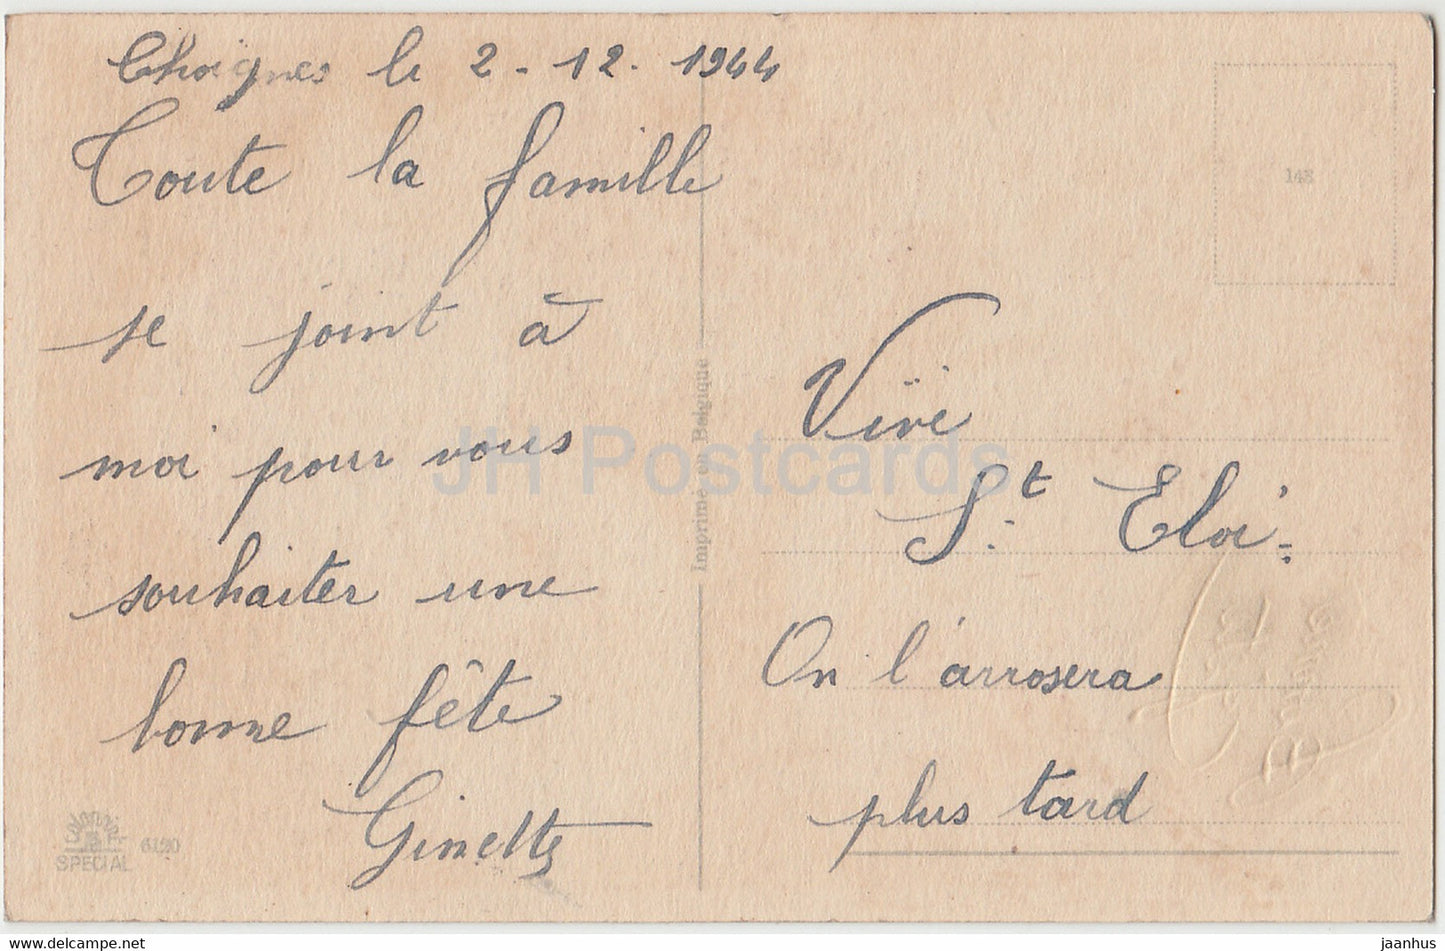 Choignes le 2 - 12 - 1944
Toute la famille
se joint à
moi pour vous
souhaiter une
bonne fête
Ginette
Vive
St Eloi
On l'arrosera
plus tard
148
Imprimé en Belgique
SPECIAL 6190
JH Postcards
www.delcampe.net
jaanhus